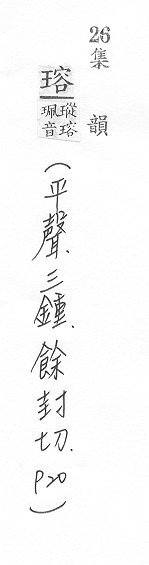 26集韻
瑢
瑽瑢
珮音
(平聲.三鍾.餘封切.P20)